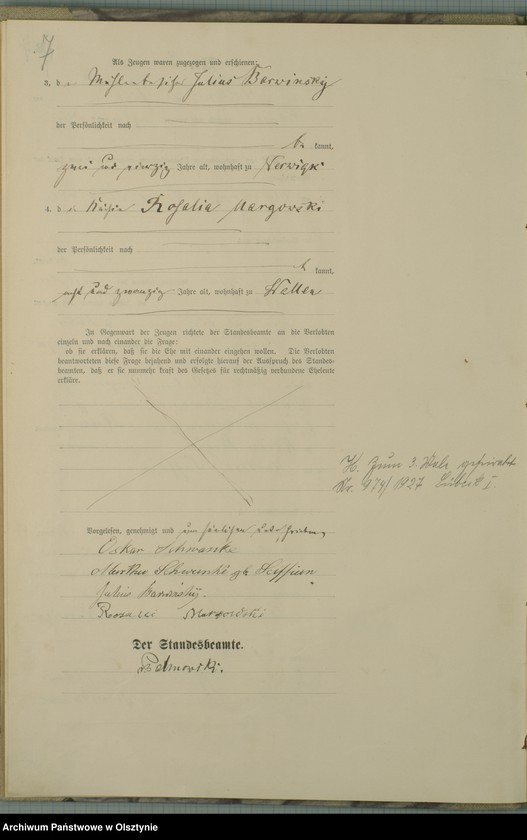 7
Als Zeugen waren zugezogen und erschienen:
3. der Mühlenbesitzer Julius Barwinsky
der Persönlichkeit nach
be kannt,
zwei und vierzig Jahre alt, wohnhaft zu Nerwigk
4. der Rosalia Margowski
der Persönlichkeit nach
be kannt,
acht und zwanzig Jahre alt, wohnhaft zu
In Gegenwart der Zeugen richtete der Standesbeamte an die Verlobten
einzeln und nach einander die Frage:
ob sie erklären, daß sie die Ehe mit einander eingehen wollen. Die Verlobten
beantworteten diese Frage bejahend und erfolgte hierauf der Ausspruch des Standes-
beamten, daß er sie nunmehr kraft des Gesetzes für rechtmäßig verbundene Eheleute
erkläre.
H. zum 3. Male geheiratet
Nr. 974/1927 Lübeck I.
Vorgelesen, genehmigt und unterschrieben
Oskar Schwanke
Martha Schwenke geb.
Julius Barwinsky
Margowski
Der Standesbeamte.
Archiwum Państwowe w Olsztynie